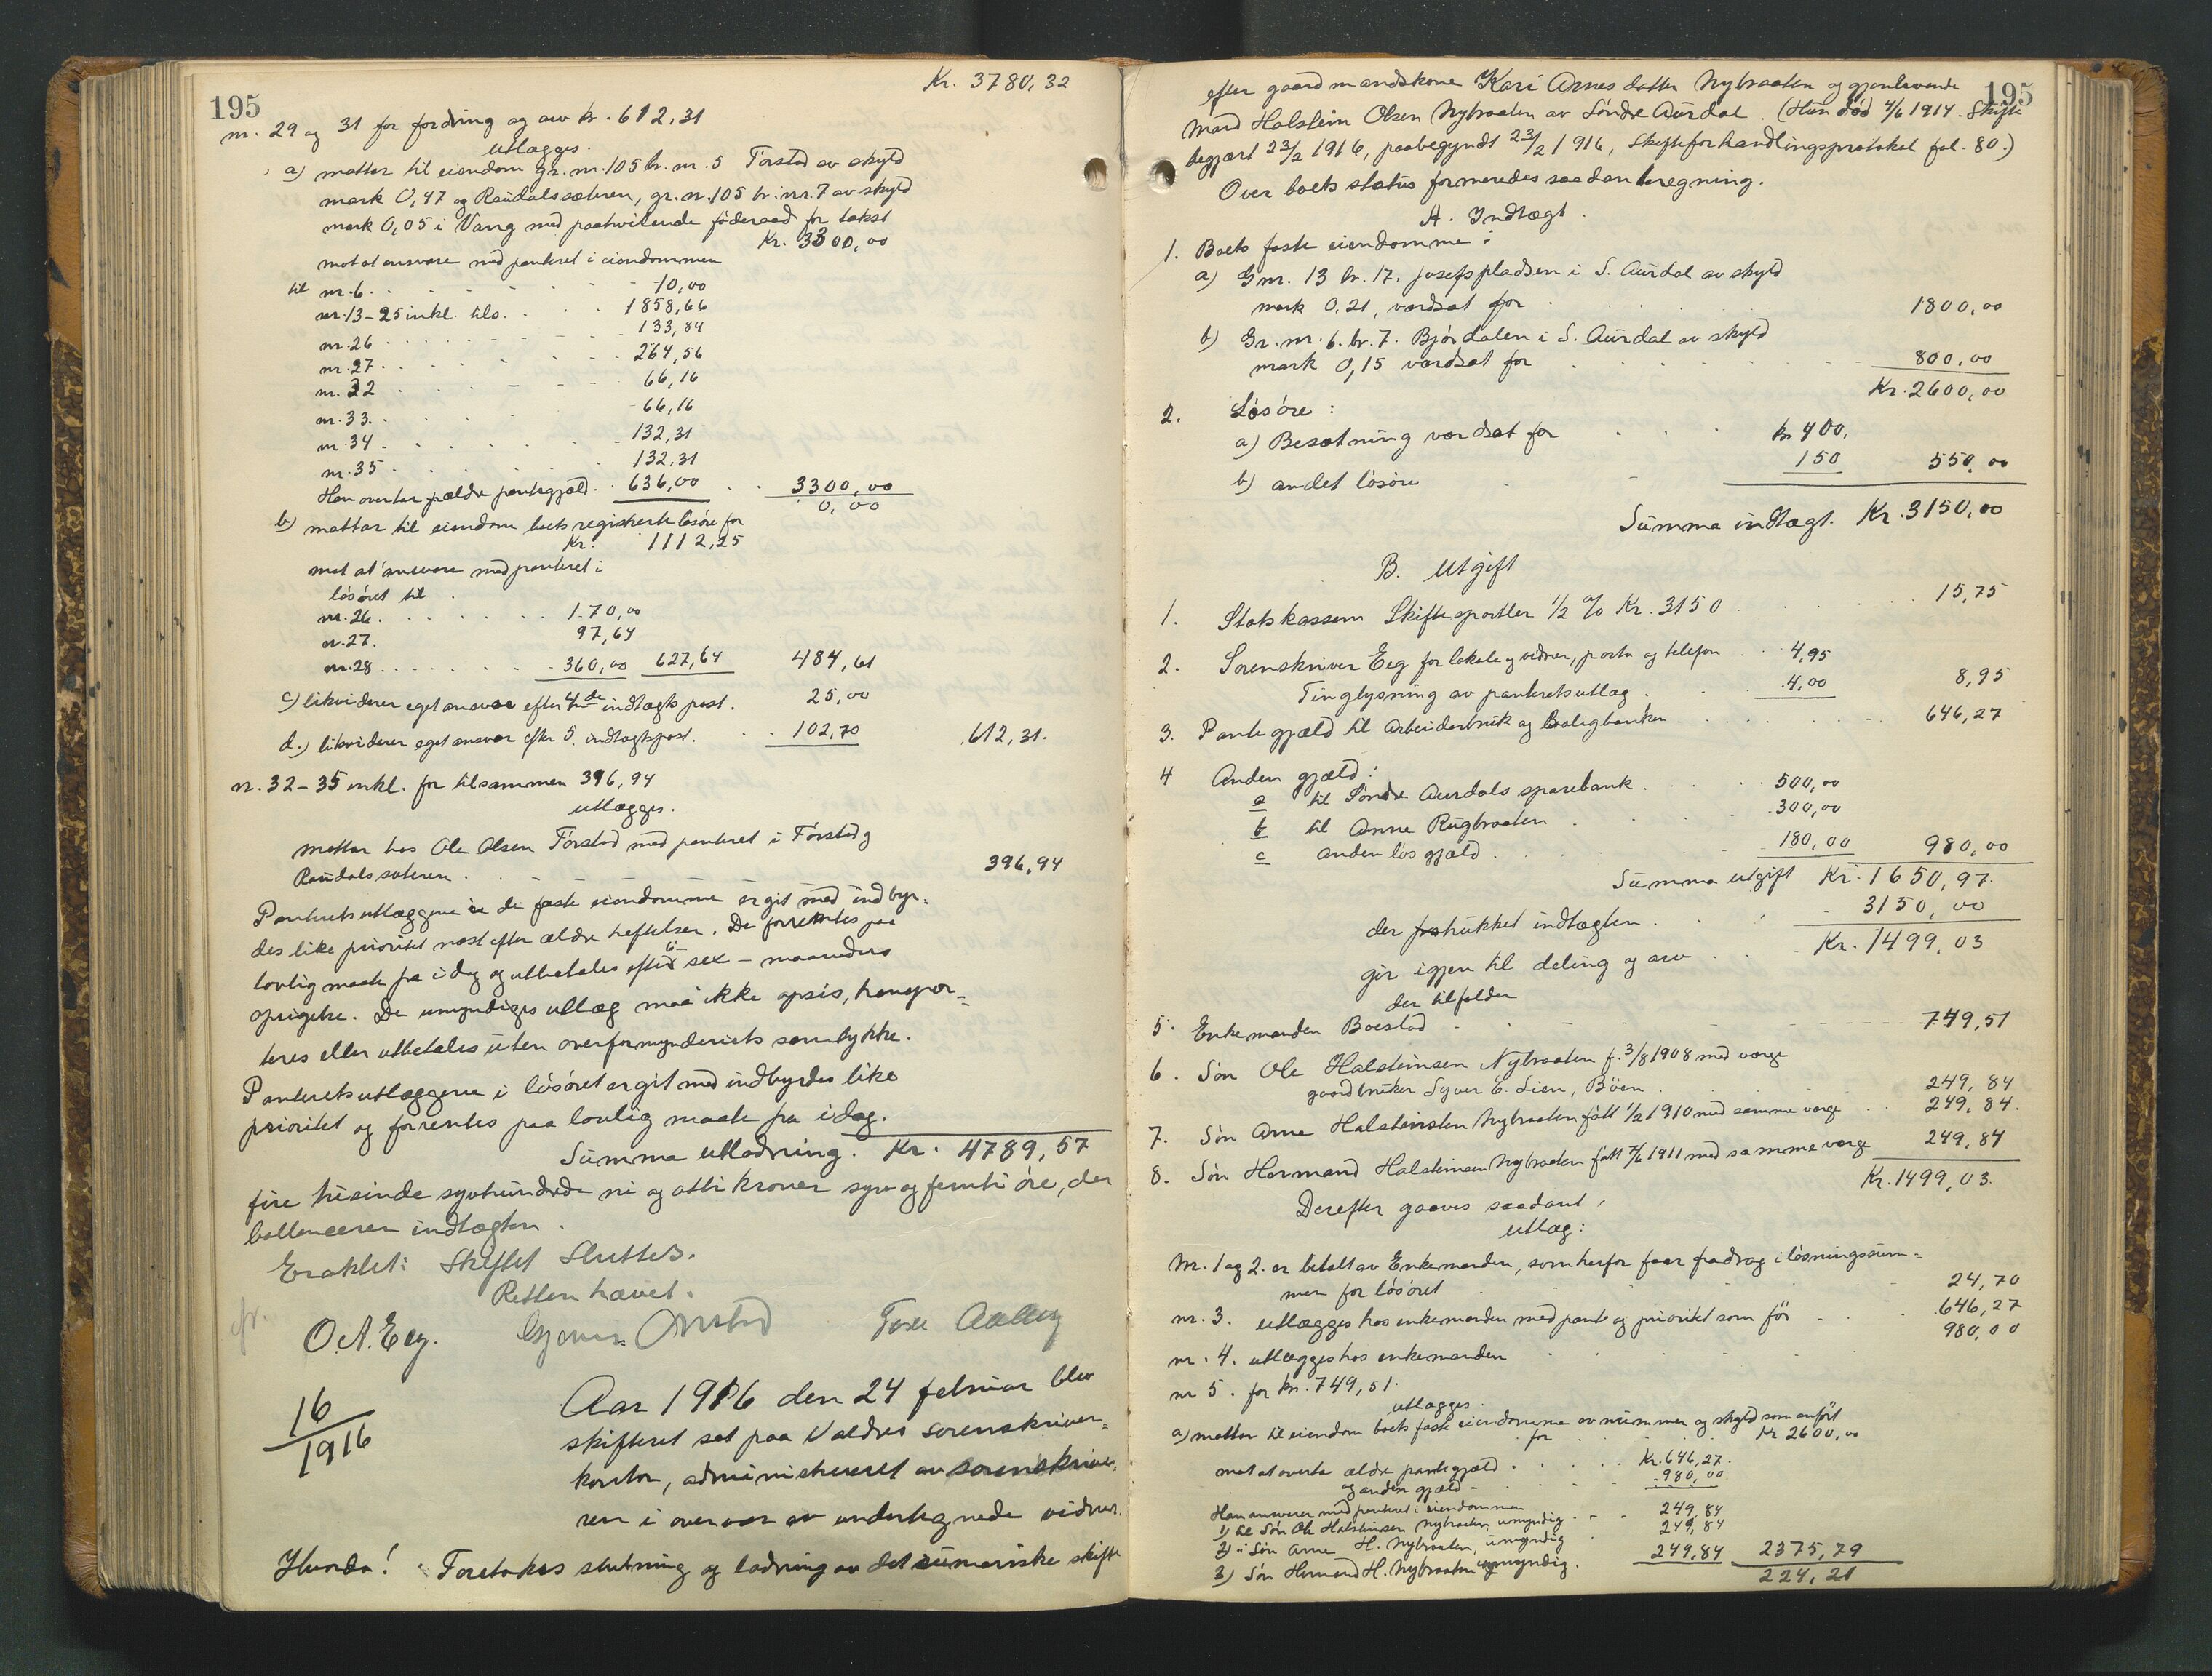 195
Kr. 3780,32
nr. 29 og 31 for fordring og arv kr. 612,31
utlægges.
a) mottar til eiendom gr. nr. 105 br. nr. 5 Törstad av skyld
mark 0,47 og Raudalssæteren, gr. nr. 105 br. nr. 7 av skyld
mark 0,05 i Vang med paahvilende föderaad for takst
Kr. 3300,00
mot at ansvare med panteret i eiendommen
til nr. 6. 10,00
nr. 13-25 inkl. tils. 1858,66
nr. 26 133,84
nr. 27. 264,56
nr. 32 66,16
nr. 33. 66,16
nr. 34 132,31
nr. 35 132,31
Han overtar ældre pantegjæld. 636,00 3300,00
0,00
b) mottar til eiendom boets registrerte lösöre for
Kr. 1112,25
mot at ansvare med panteret i
lösöret til
nr. 26. 170,00
nr. 27. 97,64
nr. 28 360,00 627,64 484,61
c) likviderer eget ansvar efter 4de indtægts post. 25,00
d.) likviderer eget ansvar efter 5. indtægtspost. 102,70 612,31.
nr. 32-35 inkl. for tilsammen 396,94
utlægges.
mottar hos Ole Olsen Törstad med panteret i Törstad og
Raudalssæteren. 396,94
Panteretsutlæggene i de faste eiendomme er git med indbyr-
des like prioritet næst efter ældre heftelser. De forrentes paa
lovlig maate fra i dag og utbetales efter 6 - sex - maaneders
opsigelse. De umyndiges utlæg maa ikke opsies, transpor-
teres eller utbetales uten overformynderiets samtykke.
Panteretsutlæggene i lösöret er git med indbyrdes like
prioritet og forrentes paa lovlig maate fra idag.
Summa utlodning. Kr. 4789,57
fire tusinde syvhundrede ni og otti kroner syv og femti öre, der
ballancerer indtægten.
Eraktet: Skiftet Sluttes.
Retten hævet.
O.A. Eeg.
16/1916
Aar 1916 den 24 februar blev
skifteret sat paa Valdres sorenskriver-
kontor, administreret av sorenskrive-
ren i overvær av undertegnede vidner.
Hvorda! Foretokes slutning og lodning av det summariske skifte
195
efter gaardmandskone Kari Arnesdatter Nybraaten og gjenlevende
mand Halstein Olsen Nybraaten av Söndre Aurdal. (Hun död 4/6 1914. Skifte
begjært 23/2 1916, paabegyndt 23/2 1916, Skifteforhandlingsprotokol fol. 80.)
Over boets status formeredes saadan beregning.
A. Indtægt.
1. Boets faste eiendomme:
a) Gnr. 13 br. 17. Josefspladsen i S. Aurdal av skyld
mark 0,21, værdsat for 1800,00
b) Gr. nr. 6. br. 7. Björdalen i S. Aurdal av skyld
mark 0,15 værdsat for 800,00
Kr. 2600,00
2. Lösöre:
a) Besætning værdsat for kr 400.
b) andet lösöre 150 550,00
Summa indtægt. Kr. 3150,00
B. Utgift
1. Statskassen Skiftesportler 1/2 % Kr. 3150 15,75
2. Sorenskriver Eeg for lokale og vidner, porto og telefon 4,95
Tinglysning av panteretsutlæg. 4,00 8,95
3. Pantegjæld til Arbeiderbruk og Boligbanken 646,27
4 Anden gjæld:
a til Söndre Aurdals sparebank. 500,00
b til Anne Rugbraaten 300,00
c anden lös gjæld. 180,00 980,00
Summa utgift Kr. 1650,97.
3150,00
der fratrukket indtægten.
gir igjen til deling og arv Kr. 1499,03
der tilfalder
5. Enkemanden Boeslod 749,51
6. Sön Ole Halsteinsen Nybraaten f. 3/8 1908 med verge
gaardbruker Syver E. Lien, Böen. 249,84
7. Sön Arne Halsteinsen Nybraaten född 1/2 1910 med samme verge 249,84.
8. Sön Hermand Halsteinsen Nybraaten född 7/6 1911 med samme verge 249,84
Kr. 1499,03.
Derefter gaaves saadant
utlæg:
Nr. 1 og 2. er betalt av Enkemanden, som herfor faar fradrag i lösningssum-
men for lösöret 24,70
nr. 3. utlægges hos enkemanden med pante og prioritet som för 646,27
nr. 4. utlægges hos enkemanden 980,00
nr 5. for kr. 749,51.
utlægges.
a) mottar til eiendom boets faste eiendomme av nummer og skyld som anfört
for Kr 2600,00
mot at overta ældre pantegjæld Kr. 646,27.
og anden gjæld 980,00
Han ansvarer med panteret i eiendommen
1) til Sön Ole Halsteinsen Nybraaten, umyndig 249,84
2) " Sön Arne H. Nybraaten, umyndig 249,84
3) Sön Hermand H. Nybraaten umyndig. 249,84 2375,79
224,21